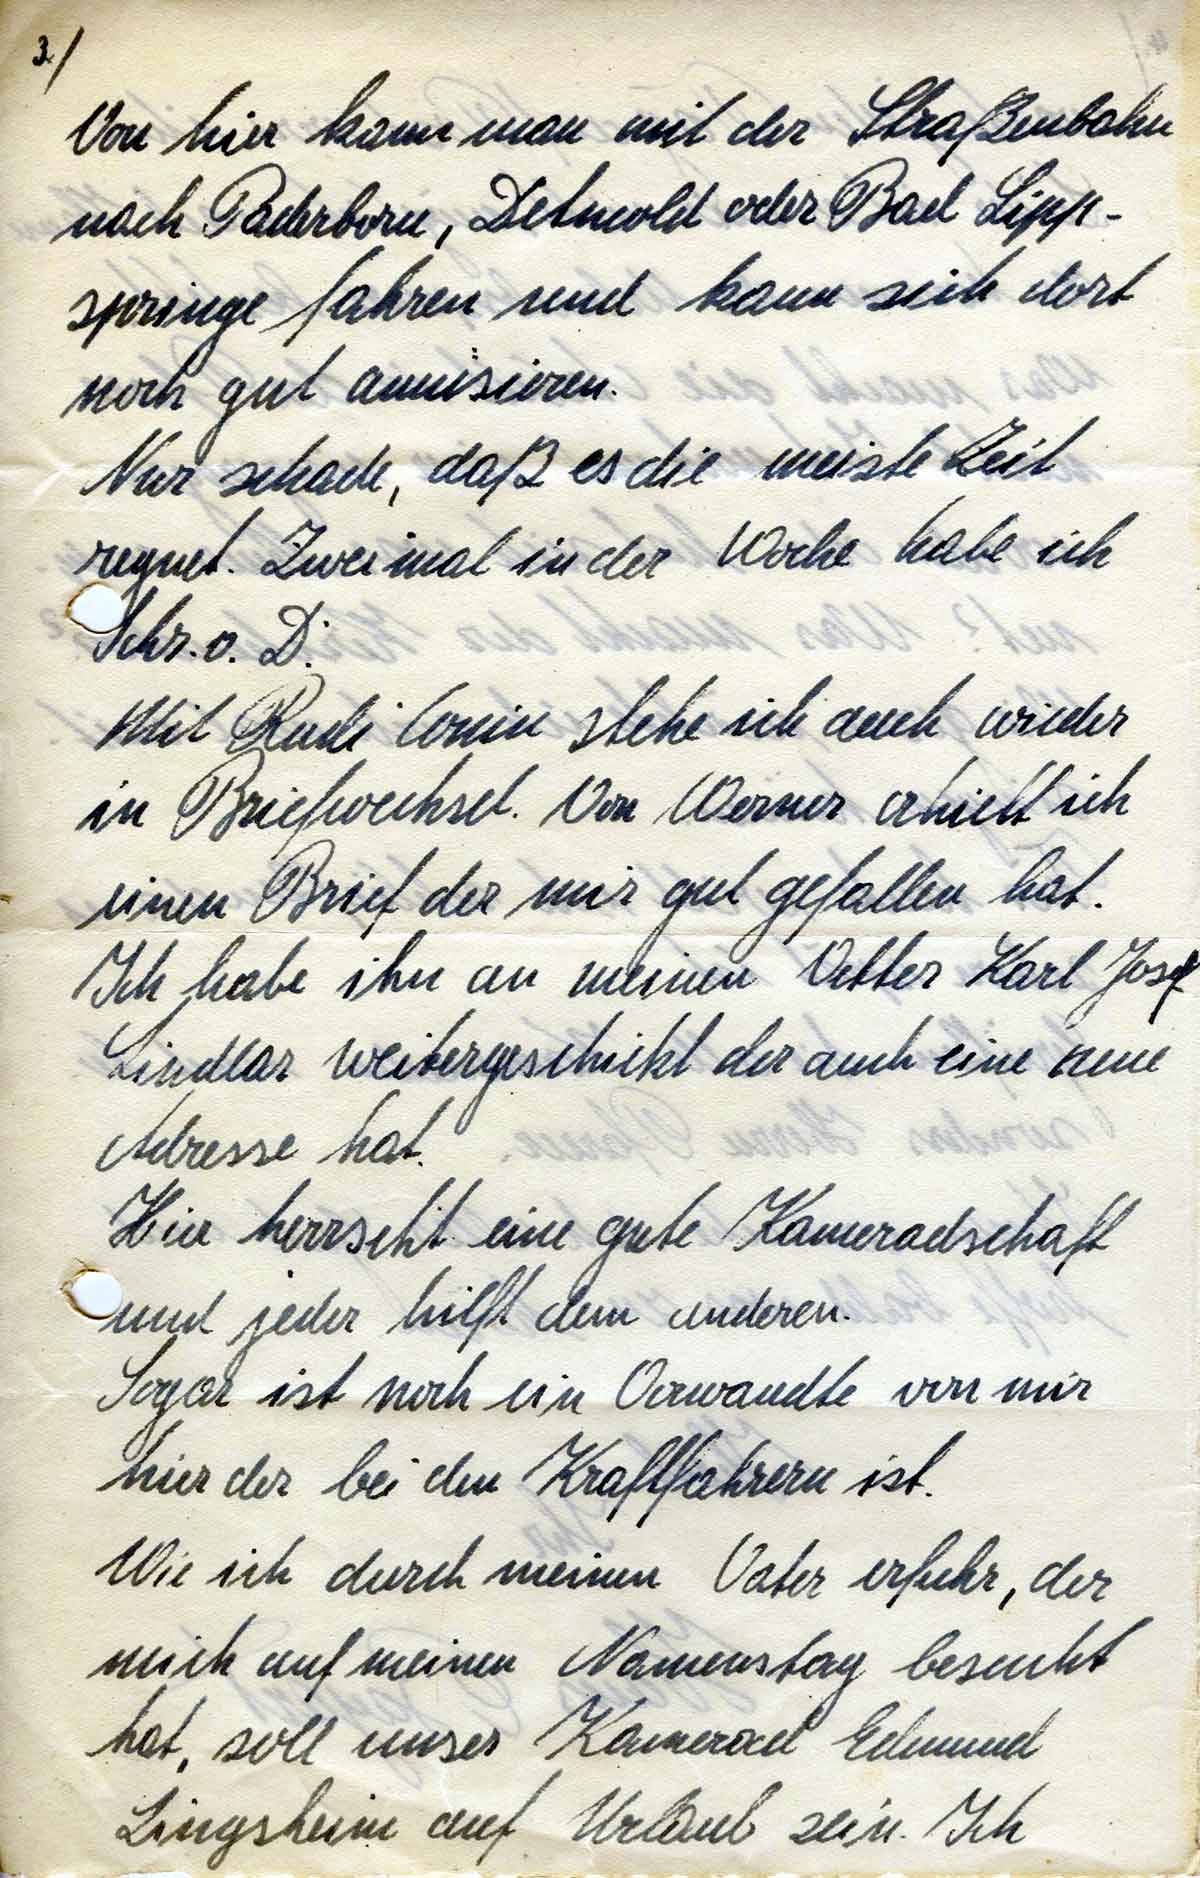 3./
Von hier kann man mit der Straßenbahn
nach Paderborn, Detmold oder Bad Lipp-
springe fahren und kann sich dort
noch gut amüsieren.
Nur schade, daß es die meiste Zeit
regnet. Zweimal in der Woche habe ich
Schr. o. D.
Mit Rudi stehe ich auch wieder
in Briefwechsel. Von Werner erhielt ich
einen Brief der mir gut gefallen hat.
Ich habe ihn an meinen Vetter Karl Josef
Lindlar weitergeschickt der auch eine neue
Adresse hat.
Hier herrscht eine gute Kameradschaft
und jeder hilft dem anderen.
Sogar ist noch ein Verwandte von mir
hier der bei den Kraftfahrern ist.
Wie ich durch meinen Vater erfuhr, der
mich auf meinen Namenstag besucht
hat, soll unser Kamerad Edmund
Lingsheim auf Urlaub sein. Ich